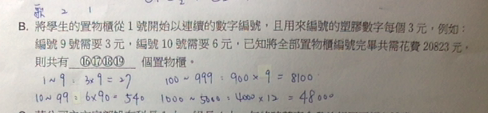 2 1
B. 將學生的置物櫃從 1 號開始以連續的數字編號，且用來編號的塑膠數字每個 3 元，例如：
編號 9 號需要 3 元，編號 10 號需要 6 元，已知將全部置物櫃編號完畢共需花費 20823 元，
則共有 ⑯⑰⑱⑲ 個置物櫃。
1~9 : 3×9 = 27 100~999 : 900×9 = 8100
10~99 = 6×90 = 540 1000~5000 : 4000×12 = 48000